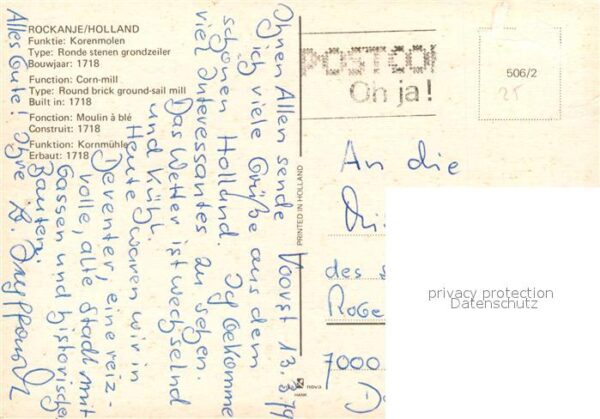 ROCKANJE/HOLLAND
Funktie: Korenmolen
Type: Ronde stenen grondzeiler
Bouwjaar: 1718
Function: Corn-mill
Type: Round brick ground-sail mill
Built in: 1718
Fonction: Moulin à blé
Construit: 1718
Funktion: Kornmühle
Erbaut: 1718
POSTCO
Oh ja!
506/2
25
PRINTED IN HOLLAND
Voorst 13.8.79
Ihnen Allen sende
ich viele Grüße aus dem
schönen Holland. Ich bekomme
viel Interessantes zu sehen.
Das Wetter ist wechselnd
und kühl.
Heute waren wir in
Deventer, eine reiz-
volle, alte Stadt mit
Gassen und historische
Bauten.
Alles Gute! Ihre B.
An die
des
Roge
7000
nova
privacy protection
Datenschutz